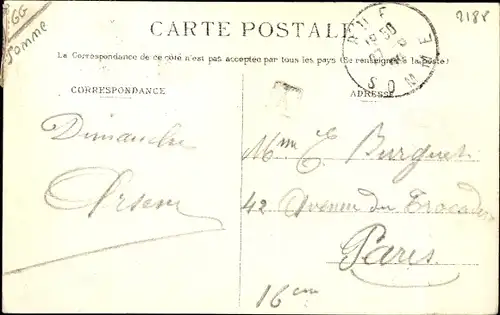 GG
Somme
2188
CARTE POSTALE
La Correspondance de ce côté n'est pas acceptée par tous les pays (Se renseigner à la poste)
RUE
SOMME
CORRESPONDANCE
ADRESSE
Dimanche
Mme E. Burguet
42 Avenue du Trocadéro
Paris
16em